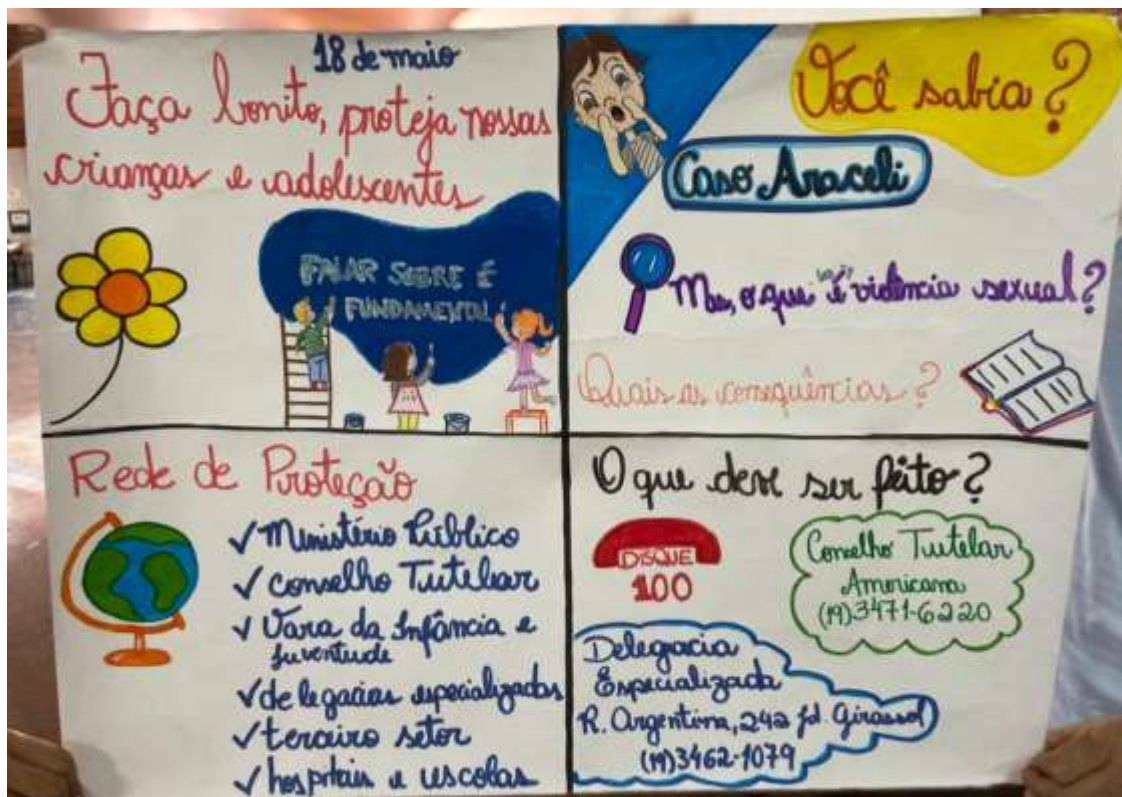 18 de maio
Faça bonito, proteja nossas
crianças e adolescentes
FALAR SOBRE É
FUNDAMENTAL
Você sabia?
Caso Araceli
Mas, o que é violência sexual?
Quais as consequências?
Rede de Proteção
✓ Ministério Público
✓ conselho Tutelar
✓ Vara da Infância e
juventude
✓ delegacias especializadas
✓ terceiro setor
✓ hospitais e escolas
O que deve ser feito?
DISQUE
100
Conselho Tutelar
Americana
(19)3471-6220
Delegacia
Especializada
R. Argentina, 242 jd. Girassol
(19)3462-1079